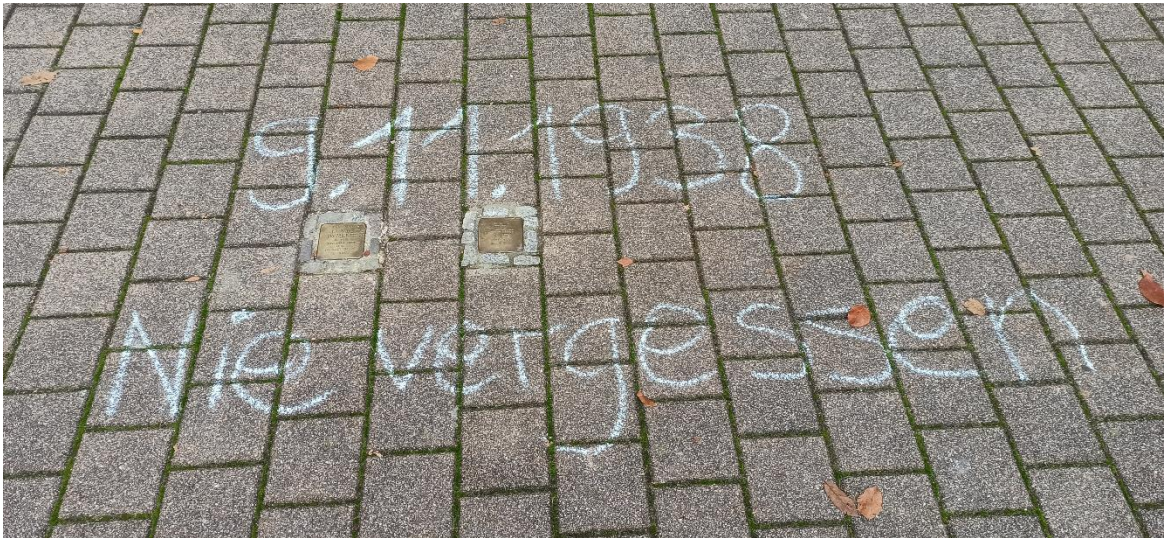 9.11.1938
Nie vergessen